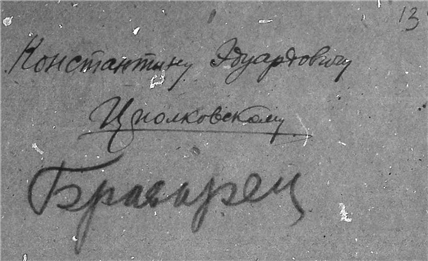 13
Константину Эдуардовичу
Циолковскому